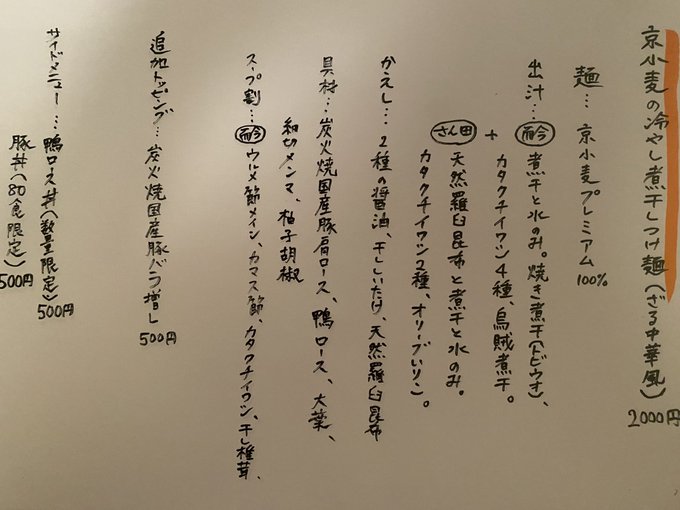 京小麦の冷やし煮干しつけ麺(ざる中華風)
2000円
麺… 京小麦プレミアム 100%
出汁…而今 煮干と水のみ。焼き煮干(トビウオ)、
カタクチイワシ4種、烏賊煮干。
+
さん田 天然羅臼昆布と煮干と水のみ。
カタクチイワシ2種、オリーブいりこ)。
かえし…2種の醤油、干ししいたけ、天然羅臼昆布
具材…炭火焼国産豚肩ロース、鴨ロース、大葉、
細切メンマ、柚子胡椒
スープ割…而今 ウルメ節メイン、カマス節、カタクチイワシ、干し椎茸、
追加トッピング…炭火焼国産豚バラ増し 500円
サイドメニュー…鴨ロース丼(数量限定) 500円
豚丼(80食限定) 500円